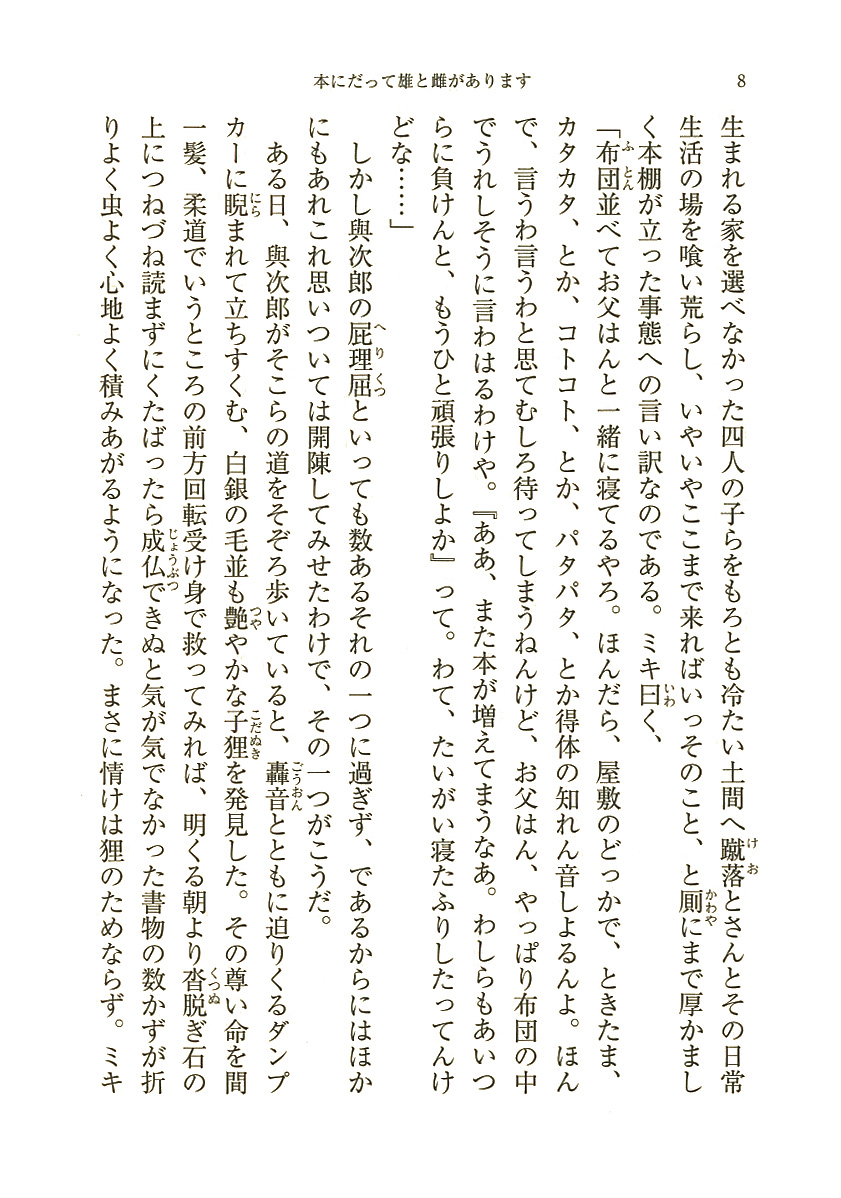 本にだって雄と雌があります
8
生まれる家を選べなかった四人の子らをもろとも冷たい土間へ蹴落とさんとその日常
生活の場を喰い荒らし、いやいやここまで来ればいっそのこと、と厠にまで厚かまし
く本棚が立った事態への言い訳なのである。ミキ曰く、
「布団並べてお父はんと一緒に寝てるやろ。ほんだら、屋敷のどっかで、ときたま、
カタカタ、とか、コトコト、とか、パタパタ、とか得体の知れん音しよるんよ。ほん
で、言うわ言うわと思てむしろ待ってしまうねんけど、お父はん、やっぱり布団の中
でうれしそうに言わはるわけや。『ああ、また本が増えてまうなあ。わしらもあいつ
らに負けんと、もうひと頑張りしよか』って。わて、たいがい寝たふりしたってんけ
どな……」
しかし與次郎の屁理屈といっても数あるそれの一つに過ぎず、であるからにはほか
にもあれこれ思いついては開陳してみせたわけで、その一つがこうだ。
ある日、與次郎がそこらの道をそぞろ歩いていると、轟音とともに迫りくるダンプ
カーに睨まれて立ちすくむ、白銀の毛並も艶やかな子狸を発見した。その尊い命を間
一髪、柔道でいうところの前方回転受け身で救ってみれば、明くる朝より沓脱ぎ石の
上につねづね読まずにくたばったら成仏できぬと気が気でなかった書物の数かずが折
りよく虫よく心地よく積みあがるようになった。まさに情けは狸のためならず。ミキ